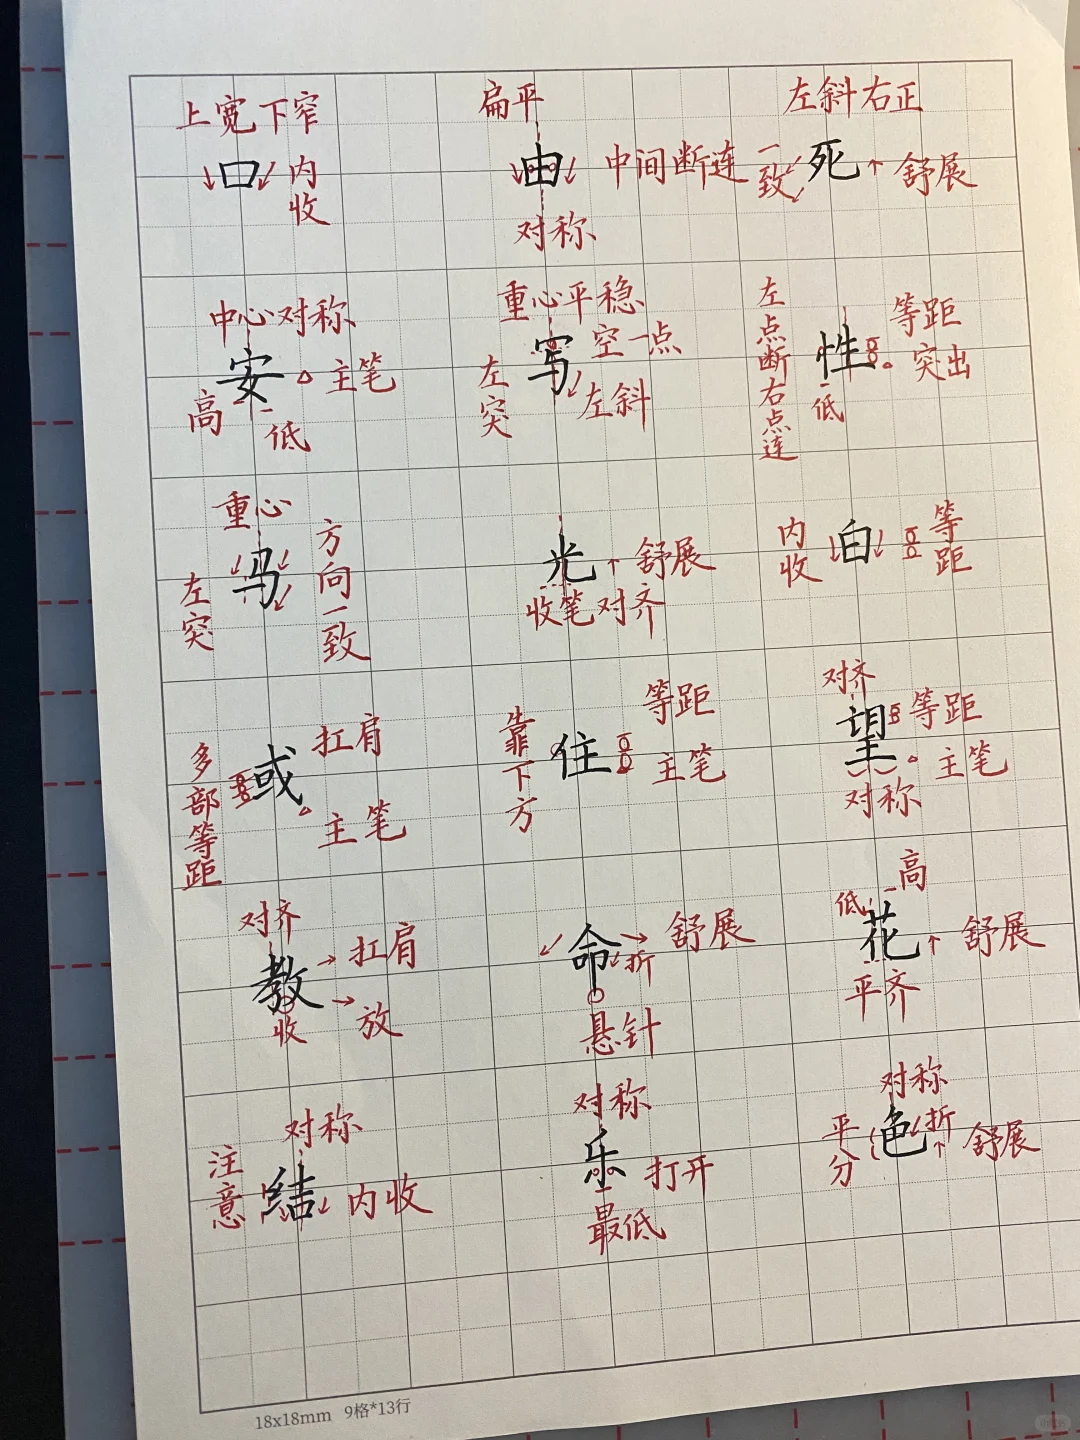 上宽下窄
口
内收
扁平
由
中间断连
对称
左斜右正
一致
死
舒展
中心对称
安
主笔
高
低
重心平稳
空一点
写
左突
左斜
左点断右点连
性
等距
突出
低
重心
马
左突
方向一致
光
舒展
收笔对齐
内收
白
等距
多部等距
或
扛肩
主笔
靠下方
住
等距
主笔
对齐
望
等距
主笔
对称
对齐
教
扛肩
放
收
命
舒展
折
悬针
高
低
花
舒展
平齐
对称
注意
结
内收
对称
乐
打开
最低
对称
平分
色
折
舒展
18x18mm 9格*13行